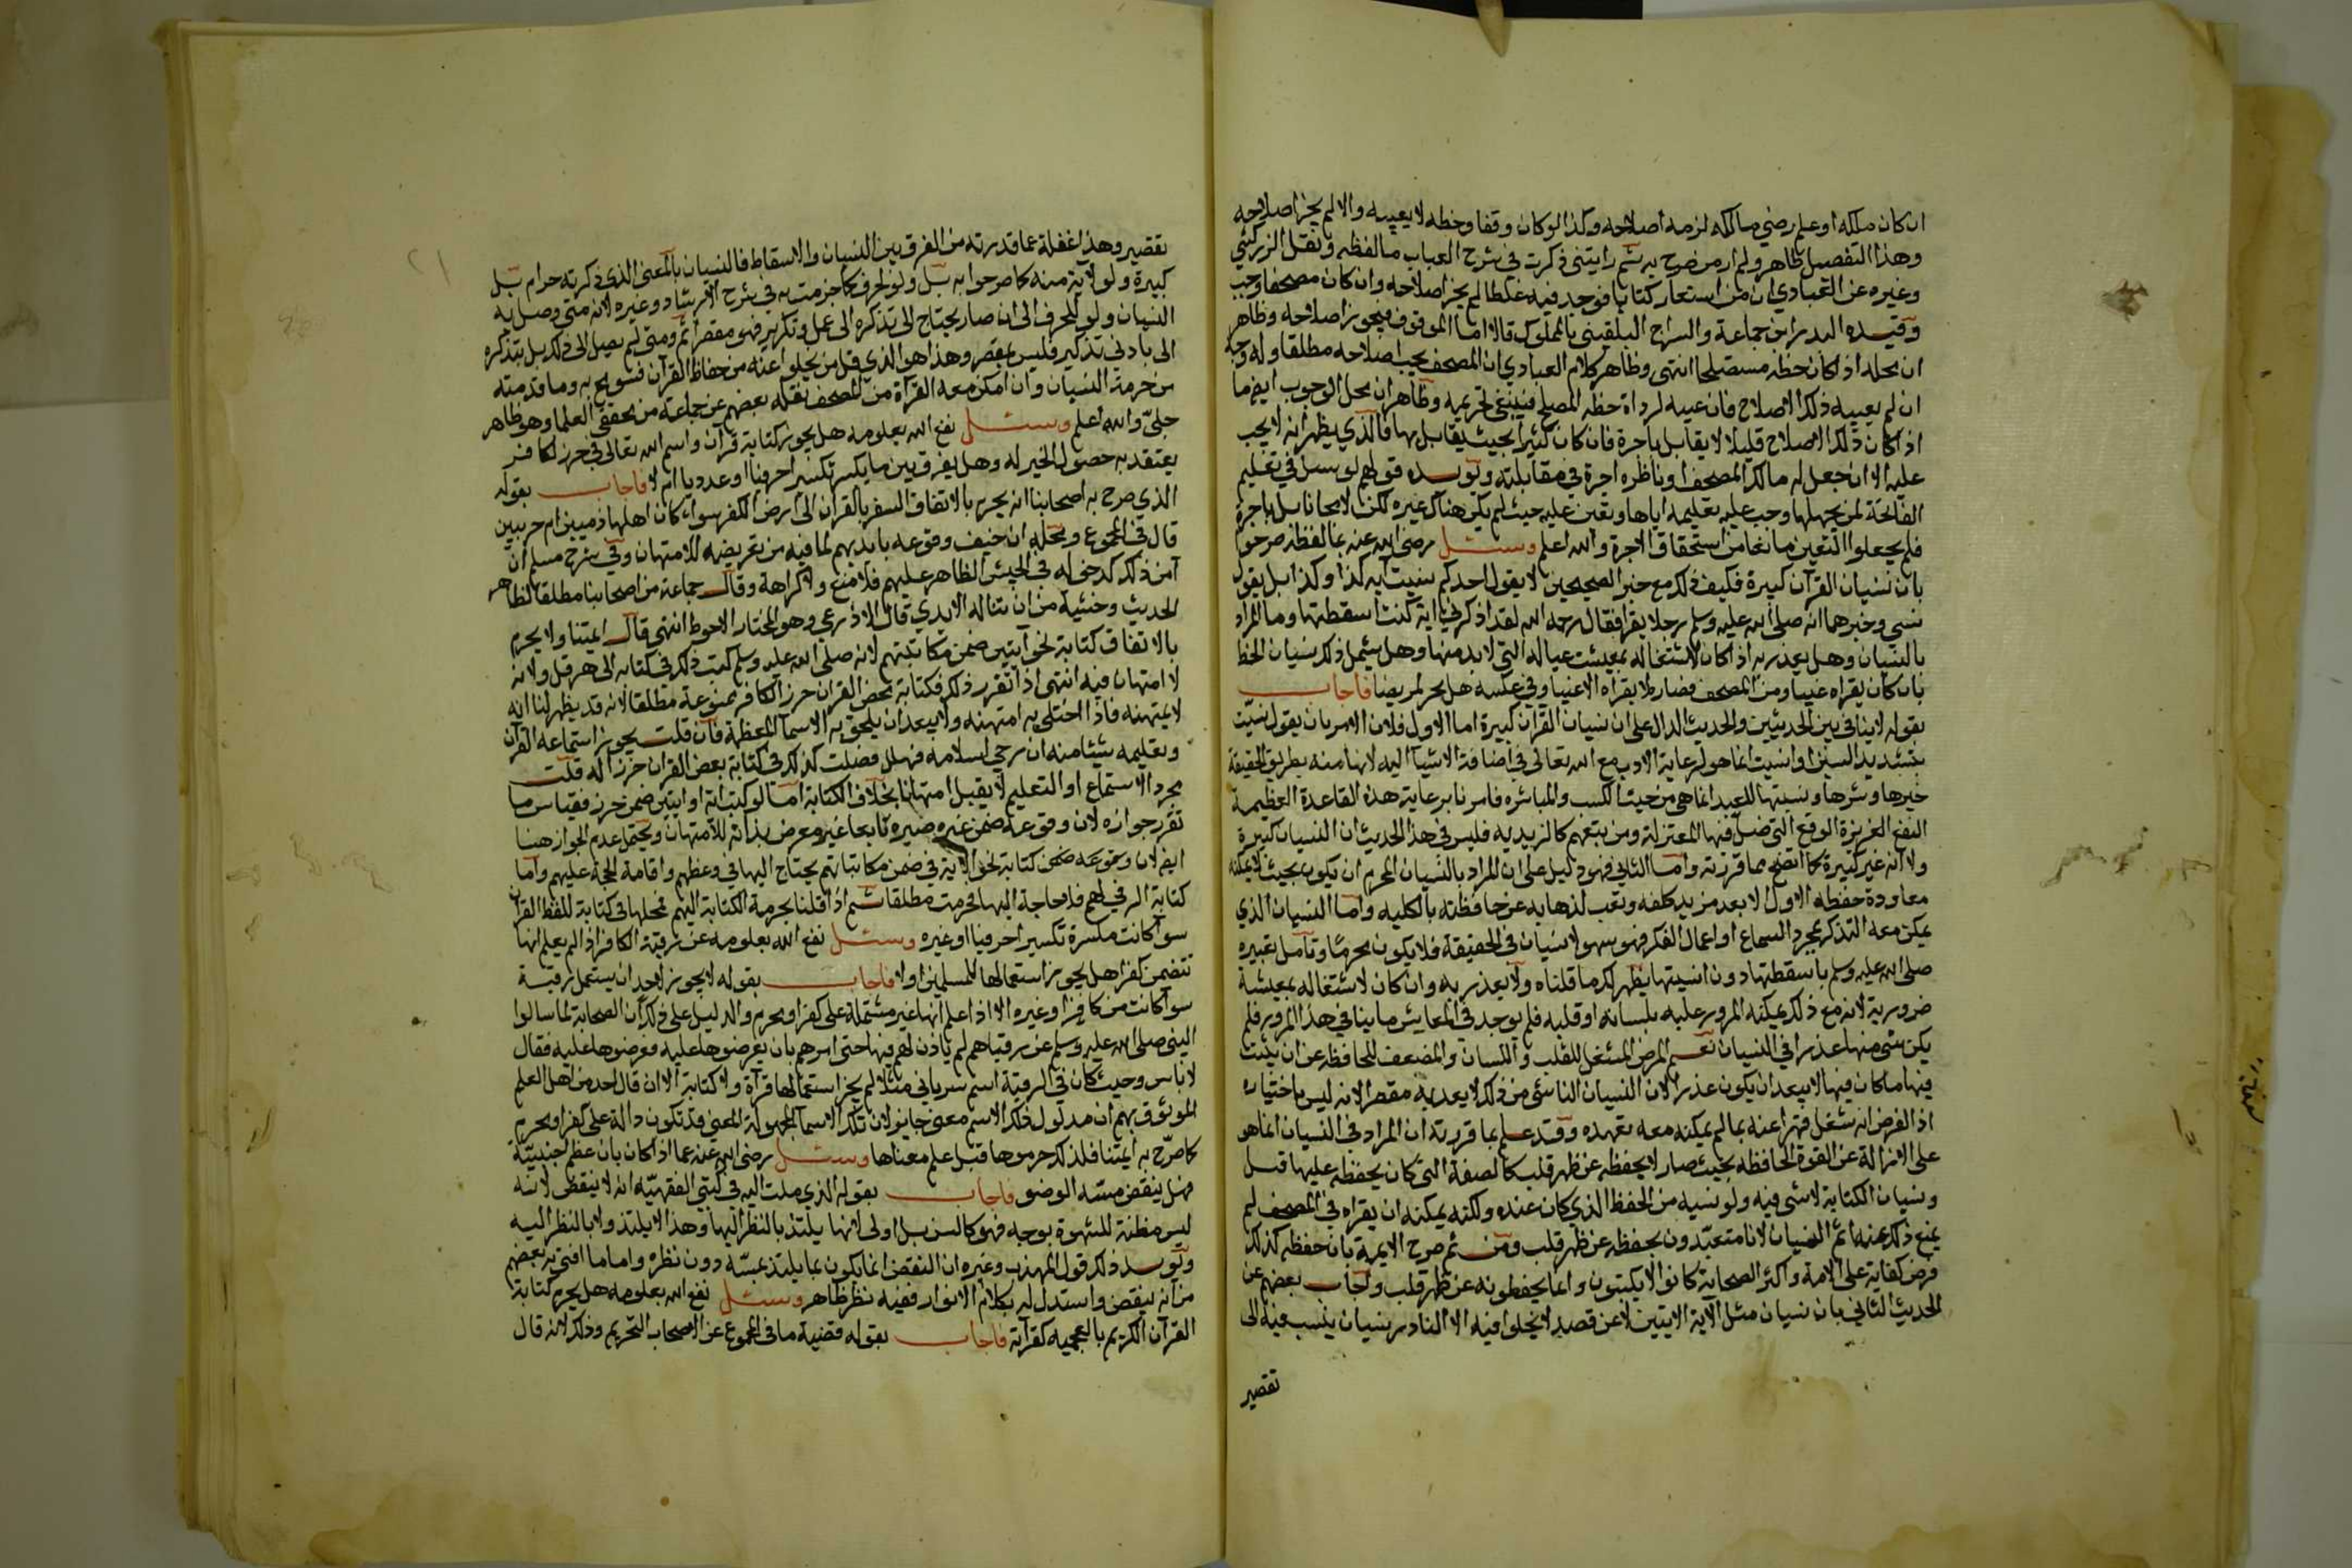 ان كان ملكه او علم رضي مالكه لزمه اصلاحه وكذا لو كان وقفا وخطه لا يعيبه والا لم يجز اصلاحه
وهذا التفصيل ظاهر ولم ار من صرح به ثم رايتني ذكرت في شرح العباب ما لفظه ونقل الزركشي
وغيره عن العبادي ان من استعار كتابا فوجد فيه غلطا لم يجز اصلاحه وان كان مصحفا وجب
وقيده البدر ابن جماعة والسراج البلقيني بالمملوك قالا اما الموقوف فيجوز اصلاحه وظاهر
ان محله اذا كان خطه مستصلحا انتهى وظاهر كلام العبادي ان المصحف يجب اصلاحه مطلقا وله وجه
ان لم يعيبه ذلك الاصلاح فان عيبه لرداة خطه المصلح فينبغي تحريمه وظاهر ان محل الوجوب ايض ما
اذا كان ذلك الاصلاح قليلا لا يقابل باجرة فان كان كثيرا بحيث يقابل بها فالذي يظهر انه لا يجب
عليه الا ان جعل له مالك المصحف او ناظره اجرة في مقابلته ويويده قولهم لو سئل في تعليم
الفاتحة لمن يجهلها وجب عليه تعليمه اياها وتعين عليه حيث لم يكن هناك غيره لكن لا مجانا بل باجرة
فلم يجعلوا التعين مانعا من استحقاق الاجرة والله اعلم وسئل رضي الله عنه عما لفظه صرحوا
بان نسيان القرآن كبيرة فكيف ذلك مع خبر الصحيحين لا يقول احدكم نسيت آية كذا وكذا بل يقول
نسي وخبرهما انه صلى الله عليه وسلم سمع رجلا يقرا فقال رحمه الله لقد اذكرني اية كنت اسقطتها وما المراد
بالنسيان وهل يعذر به اذا كان لاشتغاله بمعيشت عياله التي لا بد منها وهل يشمل ذلك نسيان الخط
بان كان يقراه غيبا ومن المصحف فصار لا يقراه الا غيبا وفي عكسه هل يحرم ايضا فاجاب
بقوله لا ينافي بين الحديثين والحديث الدال على ان نسيان القرآن كبيرة اما الاول فلان الامر بان يقول نسيت
بتشديد السين او انسيت انما هو لرعاية الادب مع الله تعالى في اضافة الاشيا اليه لانها منه بطريق الحقيقة
خيرها وشرها ونسبتها للعبد انما هي من حيث الكسب والمباشره فامرنا برعاية هذه القاعدة العظيمة
النفع العزيزة الوقع التي ضل فيها المعتزلة ومن تبعهم كالزيديه فليس في هذا الحديث ان النسيان كبيرة
ولا انه غير كبيرة كما اتضح مما قررته واما الثاني فهو دليل على ان المراد بالنسيان المحرم ان يكون بحيث لا يمكنه
معاودة حفظه الاول الا بعد مزيد كلفه وتعب لذهابه عن حافظته بالكليه واما النسيان الذي
يمكن معه التذكر بمجرد السماع او اعمال الفكر فهو سهو لا نسيان في الحقيقة فلا يكون محرما وتامل تعبيره
صلى الله عليه وسلم باسقطتها دون انسيتها يظهر لك ما قلناه ولا يعذر به وان كان لاشتغاله بمعيشة
ضرورية لانه مع ذلك يمكنه المرور عليه بلسانه او قلبه فلم يوجد في المعايش ما ينافي هذا المرور فلم
يكن شي منها عذرا في النسيان نعم المرض المشغل للقلب واللسان والمضعف للحافظه عن ان يثبت
فيها ما كان فيها لا يبعد ان يكون عذرا لان النسيان الناشي من ذلك لا يعد به مقصرا لانه ليس باختياره
اذ الفرض انه شغل قهرا عنه بما لم يمكنه معه تعهده وقد علم بما قررته ان المراد في النسيان انما هو
على الازالة عن القوة الحافظه بحيث صار لا يحفظه عن ظهر قلب كالصفة التي كان يحفظه عليها قبل
ونسيان الكتابة لا شي فيه ولو نسيه من الحفظ الذي كان عنده ولكنه يمكنه ان يقراه في المصحف لم
يمنع ذلك عنه اثم النسيان لانا متعبدون بحفظه عن ظهر قلب ومن ثم صرح الايمة بان حفظه كذلك
فرض كفاية على الامة واكثر الصحابة كانوا لا يكتبون وانما يحفظونه عن ظهر قلب واجاب بعضهم عن
الحديث الثاني بان نسيان مثل الآية الايتين لا عن قصد لا يخلوا فيه الا النادر نسيان ينسب فيه الى
تقصير
٢١
تقصير وهذا غفلة عما قدرته من الفرق بين النسيان والاسقاط فالنسيان بالمعنى الذي ذكرته حرام بل
كبيرة ولو لآية منه كما صرحوا به بل ولو لحرف كما جزمت به في شرح الارشاد وغيره لانه متى وصل به
النسيان ولو للحرف الى ان صار يحتاج الى تذكره الى عمل وتكرير فهو مقصر اثم ومتى لم يصل الى ذلك بل يتذكره
الى بادني تذكير فليس بمقصر وهذا هو الذي قل من يخلوا عنه من حفاظ القرآن فسومح به وما قدمته
من حرمة النسيان وان امكن معه القرآة من المصحف نقله بعضهم عن جماعة من محققي العلما وهو ظاهر
جلي والله اعلم وسئل نفع الله بعلومه هل يجوز كتابة قران واسم الله تعالى في حرز لكافر
يعتقد به حصول الخير له وهل يفرق بين ما يكسر تكسير احرفيا او عدديا ام لا فاجاب بقوله
الذي صرح به اصحابنا انه يحرم بالاتفاق السفر بالقران الى ارض الكفر سوا كان اهلها ذميين ام حربيين
قال في المجموع ومحله ان خيف وقوعه بايديهم لما فيه من تعريضه للامتهان وفي شرح مسلم ان
آمن ذلك كدخوله في الجيش الظاهر عليهم فلا منع ولا كراهة وقال جماعة من اصحابنا مطلقا لظاهر
الحديث وخشية من ان تناله الايدي قال الاذرعي وهو المختار الاحوط انتهى قال ايمتنا ولا يحرم
بالاتفاق كتابة نحو آيتين ضمن مكاتبتهم لانه صلى الله عليه وسلم كتب ذلك في كتابه الى هرقل ولانه
لا امتهان فيه انتهى اذا تقرر ذلك فكتابة بعض القران حرزا لكافر ممنوعة مطلقا لانه قد يظهر لنا انه
لا يمتهنه فاذا اختلى به امتهنه ولا يبعد ان يلحق به الاسما المعظمة فان قلت يجوز استماعه القرآن
وتعليمه شيئا منه ان رجي اسلامه فهلل فصلت كذلك في كتابة بعض القران حرزا له قلت
مجرد الاستماع او التعليم لا يقبل امتهانا بخلاف الكتابة اما لو كتب اية او ايتين ضمن حرز فقياس ما
تقرر جوازه لان وقوعه ضمن غيره صيره تابعا غير معرض بذاته للامتهان ويحتمل عدم الجواز هنا
ايض لان وقوعه ضمن كتابة نحو الآية في ضمن مكاتباتهم يحتاج اليها في وعظهم واقامة الحجة عليهم واما
كتابة الرقي لهم فلا حاجة اليها فحرمت مطلقا ثم اذا قلنا بحرمة الكتابة اليهم فمحلها في كتابة للفظ القران
سوا كانت مكسرة تكسير احرفيا او غيره وسئل نفع الله بعلومه عن رقية الكافر اذا لم يعلم انها
تتضمن كفرا هل يجوز استعمالها للمسلمين او لا فاجاب بقوله لا يجوز لاحد ان يستعمل رقية
سوا كانت من كافر او غيره الا اذا علم انها غير مشتملة على كفر او محرم والدليل على ذلك ان الصحابة لما سالوا
النبي صلى الله عليه وسلم عن رقياهم لم ياذن لهم فيها حتى امرهم بان يعرضوها عليه فعرضوها عليه فقال
لا باس وحيث كان في الرقية اسم سرياني مثلا لم يجز استعمالها قرآة ولا كتابة الا ان قال احد من اهل العلم
الموثوق بهم ان مدلول ذلك الاسم معنى جايز لان تلك الاسما المجهولة المعنى قد تكون دالة على كفر او محرم
كما صرح به ايمتنا فلذلك حرموها قبل علم معناها وسئل رضي الله عنه عما اذا كان بان عظم اجنبية
فهل ينقض مسه الوضو فاجاب بقوله الذي ملت اليه في كتبي الفقهية انه لا ينقض لانه
ليس مظنة للشهوة بوجه فهو كالسن بل اولى لانها يلتذ بالنظر اليها وهذا لا يلتذ ولا بالنظر اليه
ويويد ذلك قول المهذب وغيره ان النقض انما يكون بما يلتذ بمسه دون نظره واما ما افتى به بعضهم
من انه ينقض واستدل له بكلام الانوار ففيه نظر ظاهر وسئل نفع الله بعلومه هل يحرم كتابة
القرآن الكريم بالعجميه كقرآته فاجاب بقوله قضية ما في المجموع عن الاصحاب التحريم وذلك لانه قال